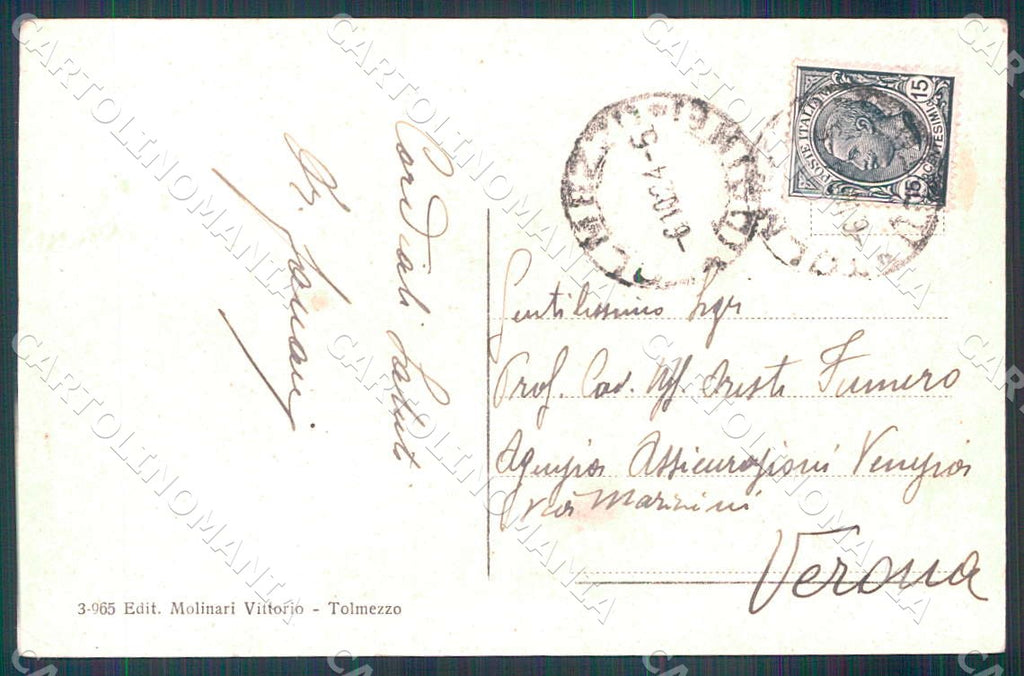 Cordiali Saluti
15
POSTE ITALIANE
CENTESIMI
15
TOLMEZZO
Gentilissimo Sigr
Prof. Cav. Uff. Oreste Fumero
Agenzia Assicurazioni Venezia
Via Mazzini
Verona
3-965 Edit. Molinari Vittorio - Tolmezzo
CARTOLINOMANIA